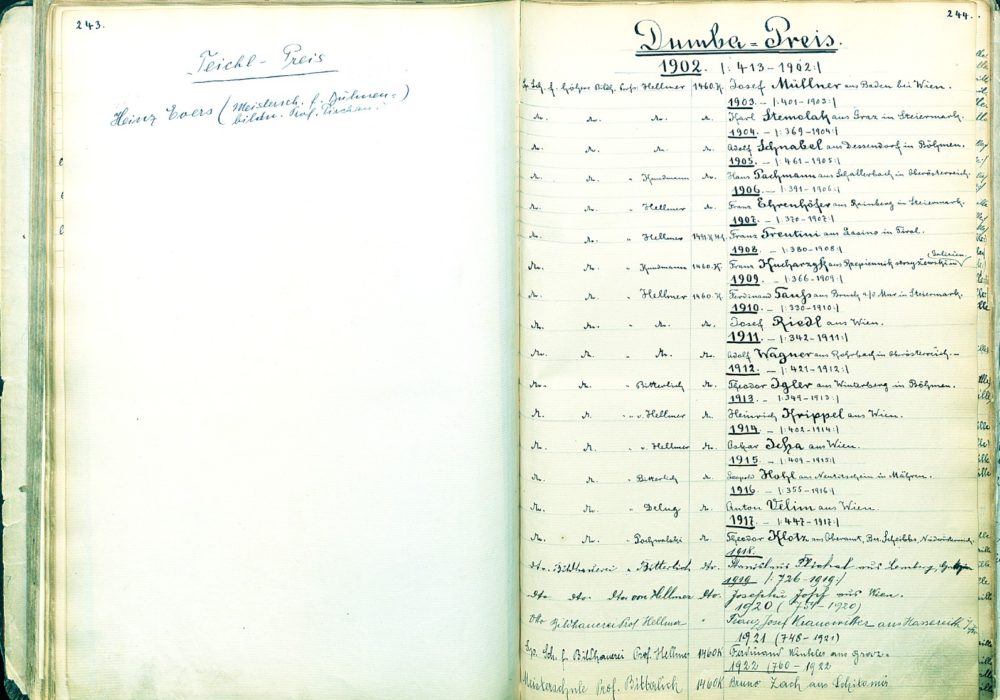 243.
Teichl-Preis
Heinz Evers (Meistersch. f. Bühnen-
bildn. Prof.
244.
Dumba-Preis.
1902. |:413-1902:|
Sp. Sch. f. höhere Bildh. Prof. Hellmer 1460 K. Josef Müllner aus Baden bei Wien.
1903. - |:401-1903:|
dto. dto. dto. dto. Karl Stemolak aus Graz in Steiermark.
1904. - |:369-1904:|
dto. dto. dto. dto. Adolf Schnabel aus Dessendorf in Böhmen.
1905. - |:461-1905:|
dto. dto. " Kundmann dto. Hans Pachmann aus Schallerbach in Oberösterreich.
1906. - |:391-1906:|
dto. dto. " Hellmer dto. Franz Ehrenhöfer aus Reinberg in Steiermark.
1907. - |:370-1907:|
dto. dto. " Hellmer Franz Trentini aus Lasino in Tirol.
1908. - |:380-1908:|
dto. dto. " Kundmann 1460 K. Franz Kucharzyk aus Rzepiennik Galizien
1909. - |:366-1909:|
dto. dto. " Hellmer 1460 K. Ferdinand aus Bruck a/d Mur in Steiermark.
1910. - |:330-1910:|
dto. dto. " dto. dto. Josef Riedl aus Wien.
1911. - |:342-1911:|
dto. dto. " dto. dto. Adolf Wagner aus Rohrbach in Oberösterreich.-
1912. - |:421-1912:|
dto. dto. " Bitterlich dto. Theodor Igler aus Winterberg in Böhmen.
1913. - |:349-1913:|
dto. dto. " v. Hellmer dto. Heinrich Krippel aus Wien.
1914. - |:402-1914:|
dto. dto. " v. Hellmer dto. Oskar Icha aus Wien.
1915. - |:409-1915:|
dto. dto. " Bitterlich dto. Leopold Hohl aus Neutitschein in Mähren.
1916. - |:355-1916:|
dto. dto. " Delug dto. Anton Velim aus Wien.
1917. - |:447-1917:|
dto. dto. " Pochwalski dto. Theodor Klotz aus Scheibbs, Niederösterreich
1918.
dto. Bildhauerei " Bitterlich dto. Stanislaus aus Lemberg,
1919 |:726-1919:|
dto. dto. dto. von Hellmer dto. Josephu Josef aus Wien.
1920 (751-1920)
dto Bildhauerei Prof. Hellmer " Franz Josef Kranewitter aus Nassereith
1921 (748-1921)
Sp. Sch. f. Bildhauerei Prof. Hellmer 1460 K Ferdinand Winkler aus Graz.
1922 (760-1922
Meisterschule Prof. Bitterlich 1460 K Bruno Zach aus Schitomir